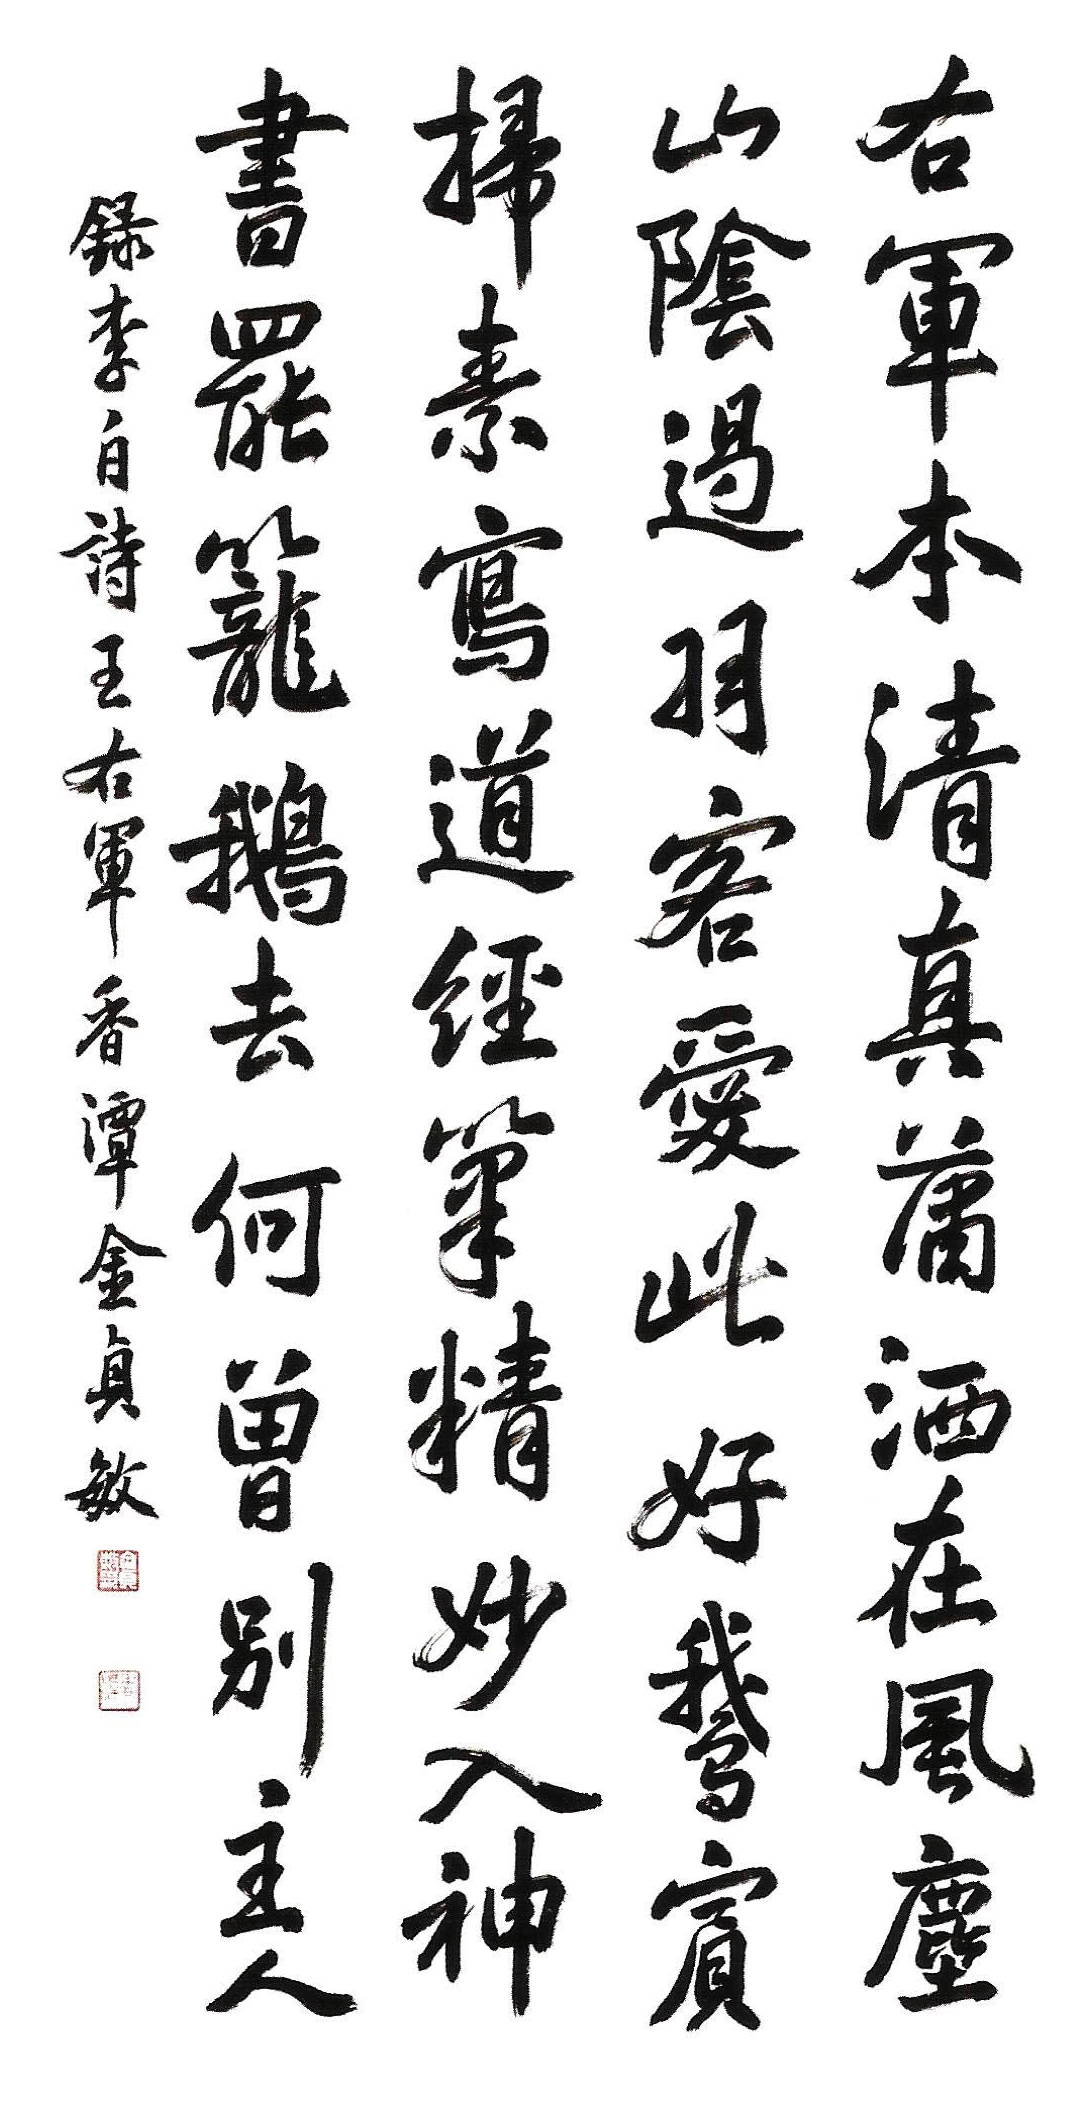 右軍本清真蕭洒在風塵
山陰過羽客愛此好鵝賓
掃素寫道經筆精妙入神
書罷籠鵝去何曾別主人
錄李白詩王右軍香潭金貞敏